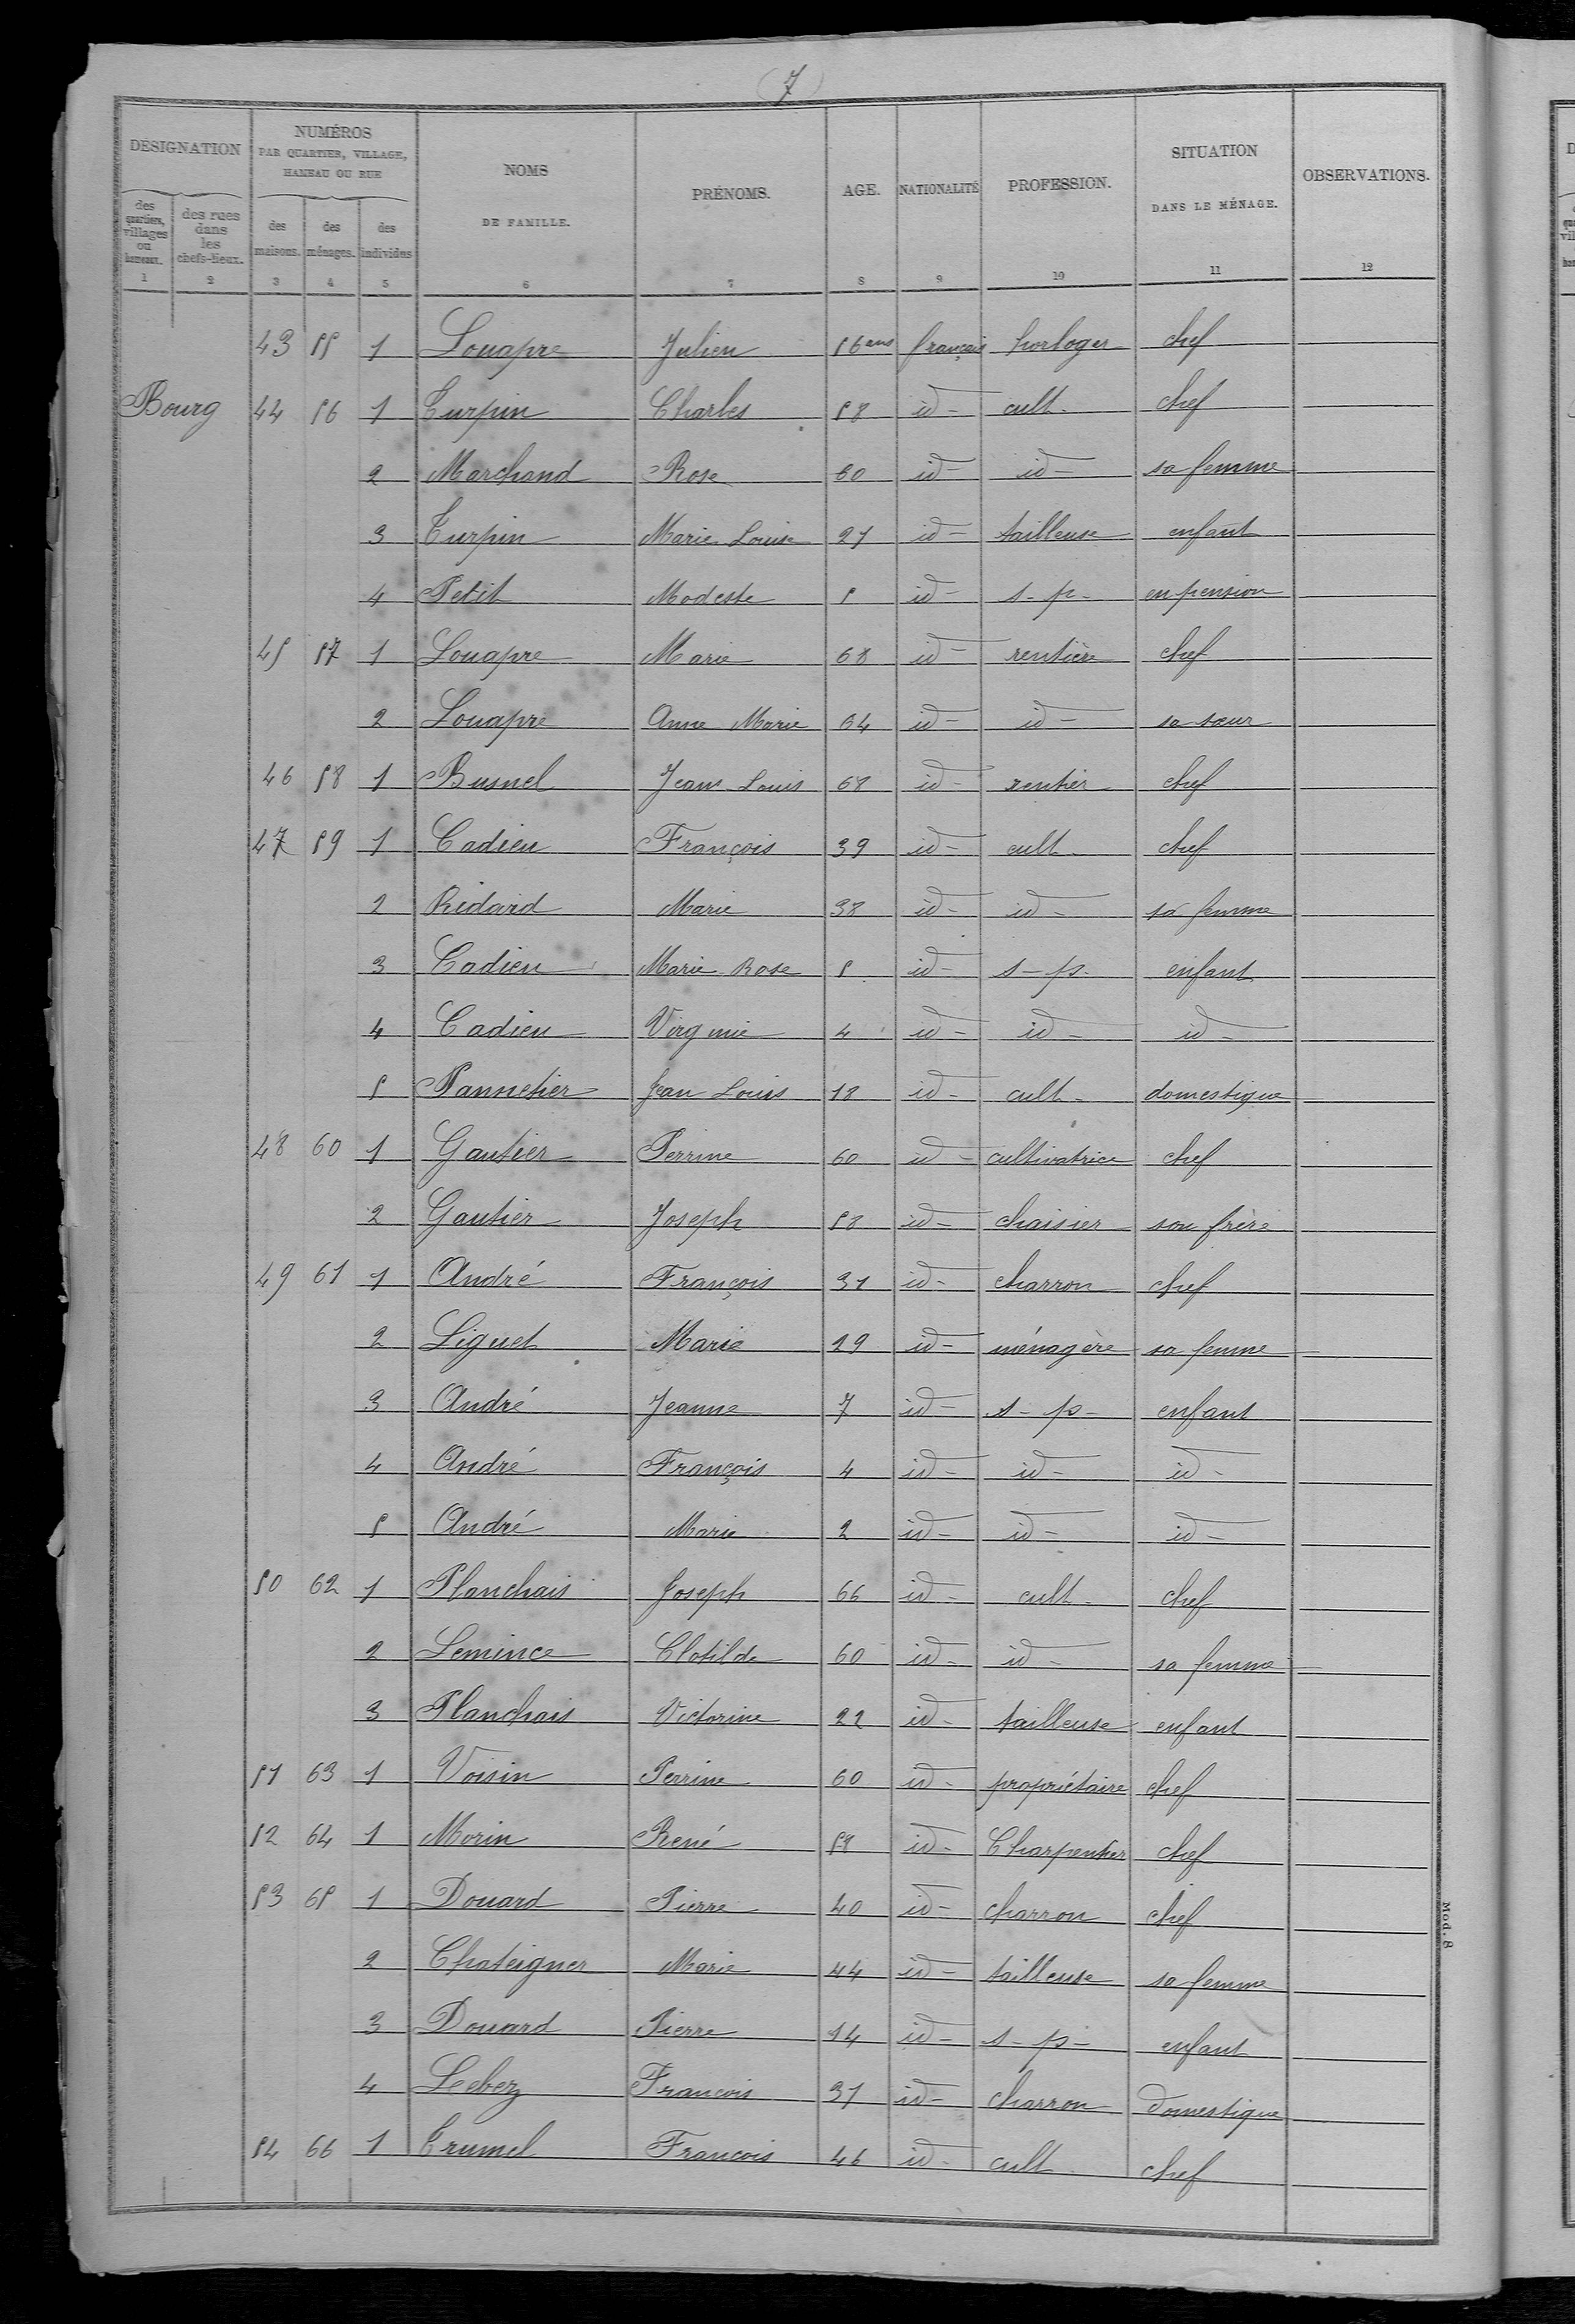 7
DÉSIGNATION | NUMÉROS PAR QUARTIER, VILLAGE, HAMEAU OU RUE | NOMS DE FAMILLE. | PRÉNOMS. | AGE. | NATIONALITÉ | PROFESSION. | SITUATION DANS LE MÉNAGE. | OBSERVATIONS.
des quartiers, villages ou hameaux. | des rues dans les chefs-lieux. | des maisons. | des ménages. | des individus
1 2 3 4 5 6 7 8 9 10 11 12
43 55 1 Louapre Julien 56 ans français horloger chef
Bourg 44 56 1 Turpin Charles 58 id- cult- chef
2 Marchand Rose 60 id- id- sa femme
3 Turpin Marie Louise 27 id- tailleuse enfant
4 Petit Modeste 5 id- s-p- en pension
45 57 1 Louapre Marie 68 id- rentière chef
2 Louapre Anne Marie 64 id- id- sa sœur
46 58 1 Busnel Jean Louis 68 id- rentier chef
47 59 1 Cadieu François 39 id- cult- chef
2 Ridard Marie 38 id- id- sa femme
3 Cadieu Marie Rose 5 id- s-p- enfant
4 Cadieu Virginie 4 id- id- id-
5 Pannetier Jean Louis 18 id- cult- domestique
48 60 1 Gautier Perrine 60 id- cultivatrice chef
2 Gautier Joseph 58 id- chaisier son frère
49 61 1 André François 31 id- charron chef
2 Liguet Marie 29 id- ménagère sa femme
3 André Jeanne 7 id- s-p- enfant
4 André François 4 id- id- id-
5 André Marie 2 id- id- id-
50 62 1 Planchais Joseph 66 id- cult- chef
2 Lemince Clotilde 60 id- id- sa femme
3 Planchais Victorine 22 id- tailleuse enfant
51 63 1 Voisin Perrine 60 id- propriétaire chef
52 64 1 Morin René id- Charpentier chef
53 65 1 Douard Pierre 40 id- charron chef
2 Chateigner Marie 44 id- tailleuse sa femme
3 Douard Pierre 14 id- s-p- enfant
4 François 31 id- charron domestique
54 66 1 Trumel François 46 id- cult- chef
Mod. 8